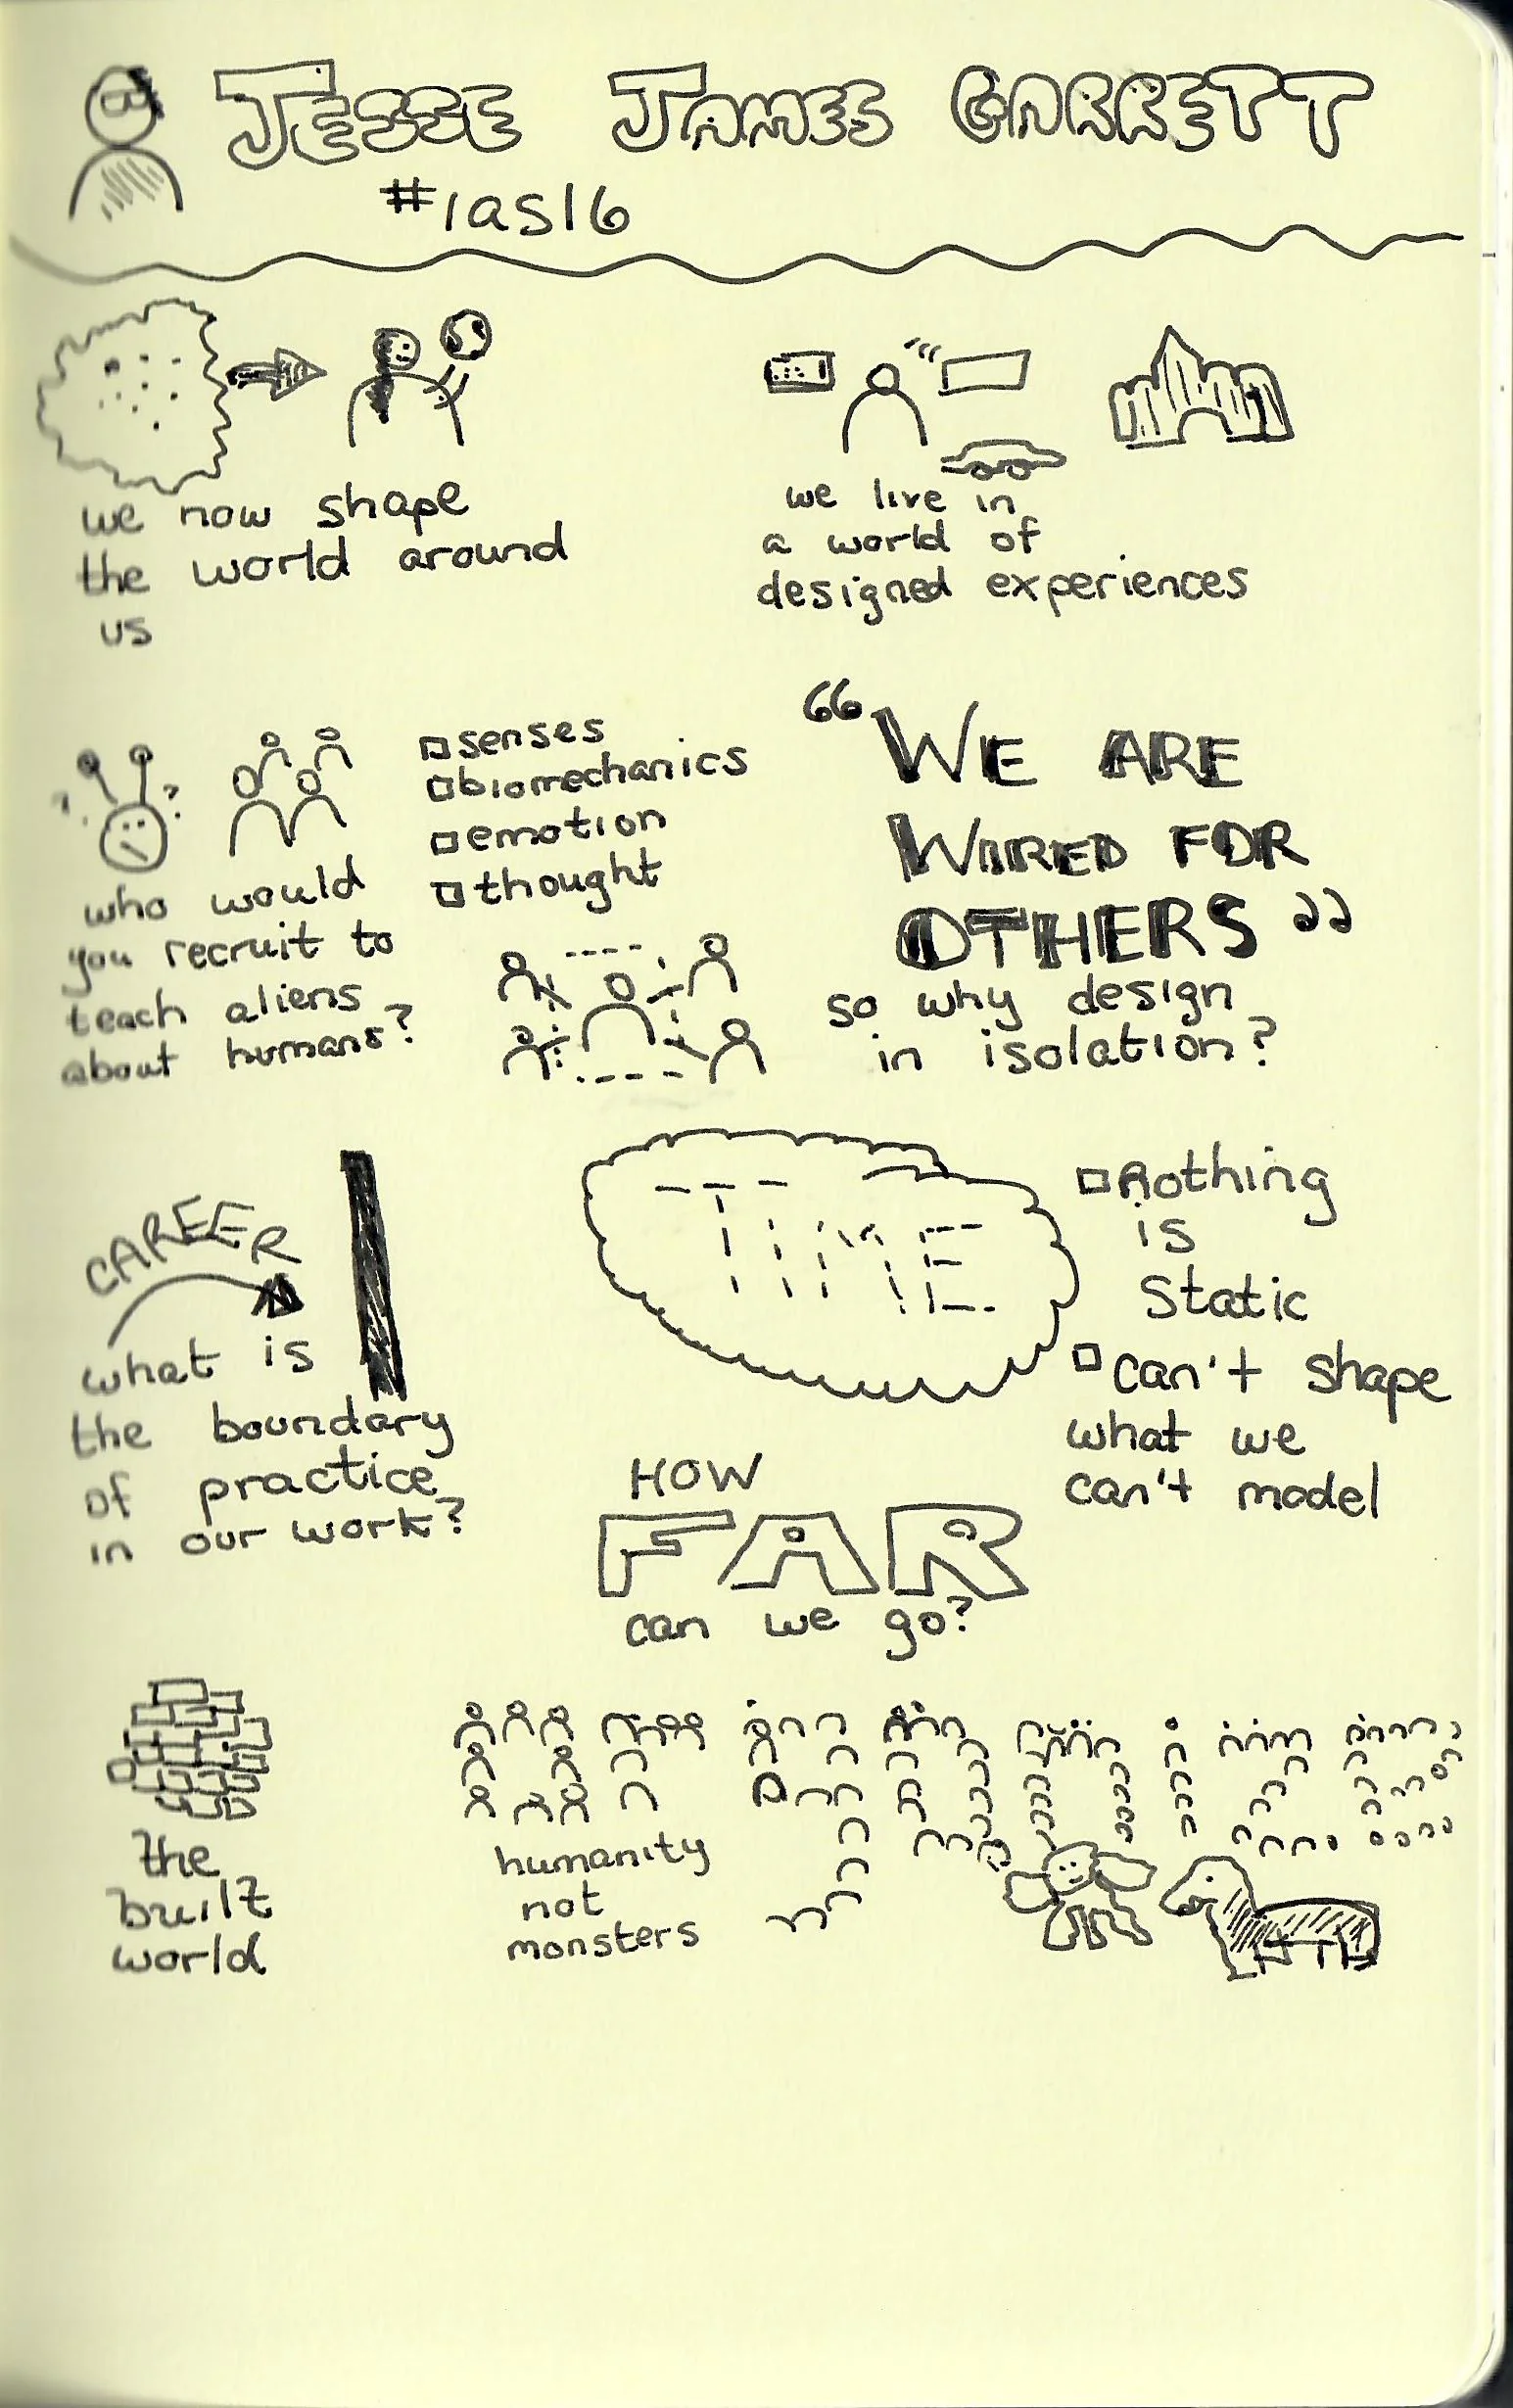 JESSE JAMES GARRETT
#ias16
we now shape
the world around
us
we live in
a world of
designed experiences
who would
you recruit to
teach aliens
about humans?
senses
biomechanics
emotion
thought
“WE ARE
WIRED FOR
OTHERS”
so why design
in isolation?
CAREER
what is
the boundary
of practice
in our work?
TIME
Nothing
is
Static
can't shape
what we
can't model
HOW
FAR
can we go?
the
built
world
humanity
not
monsters